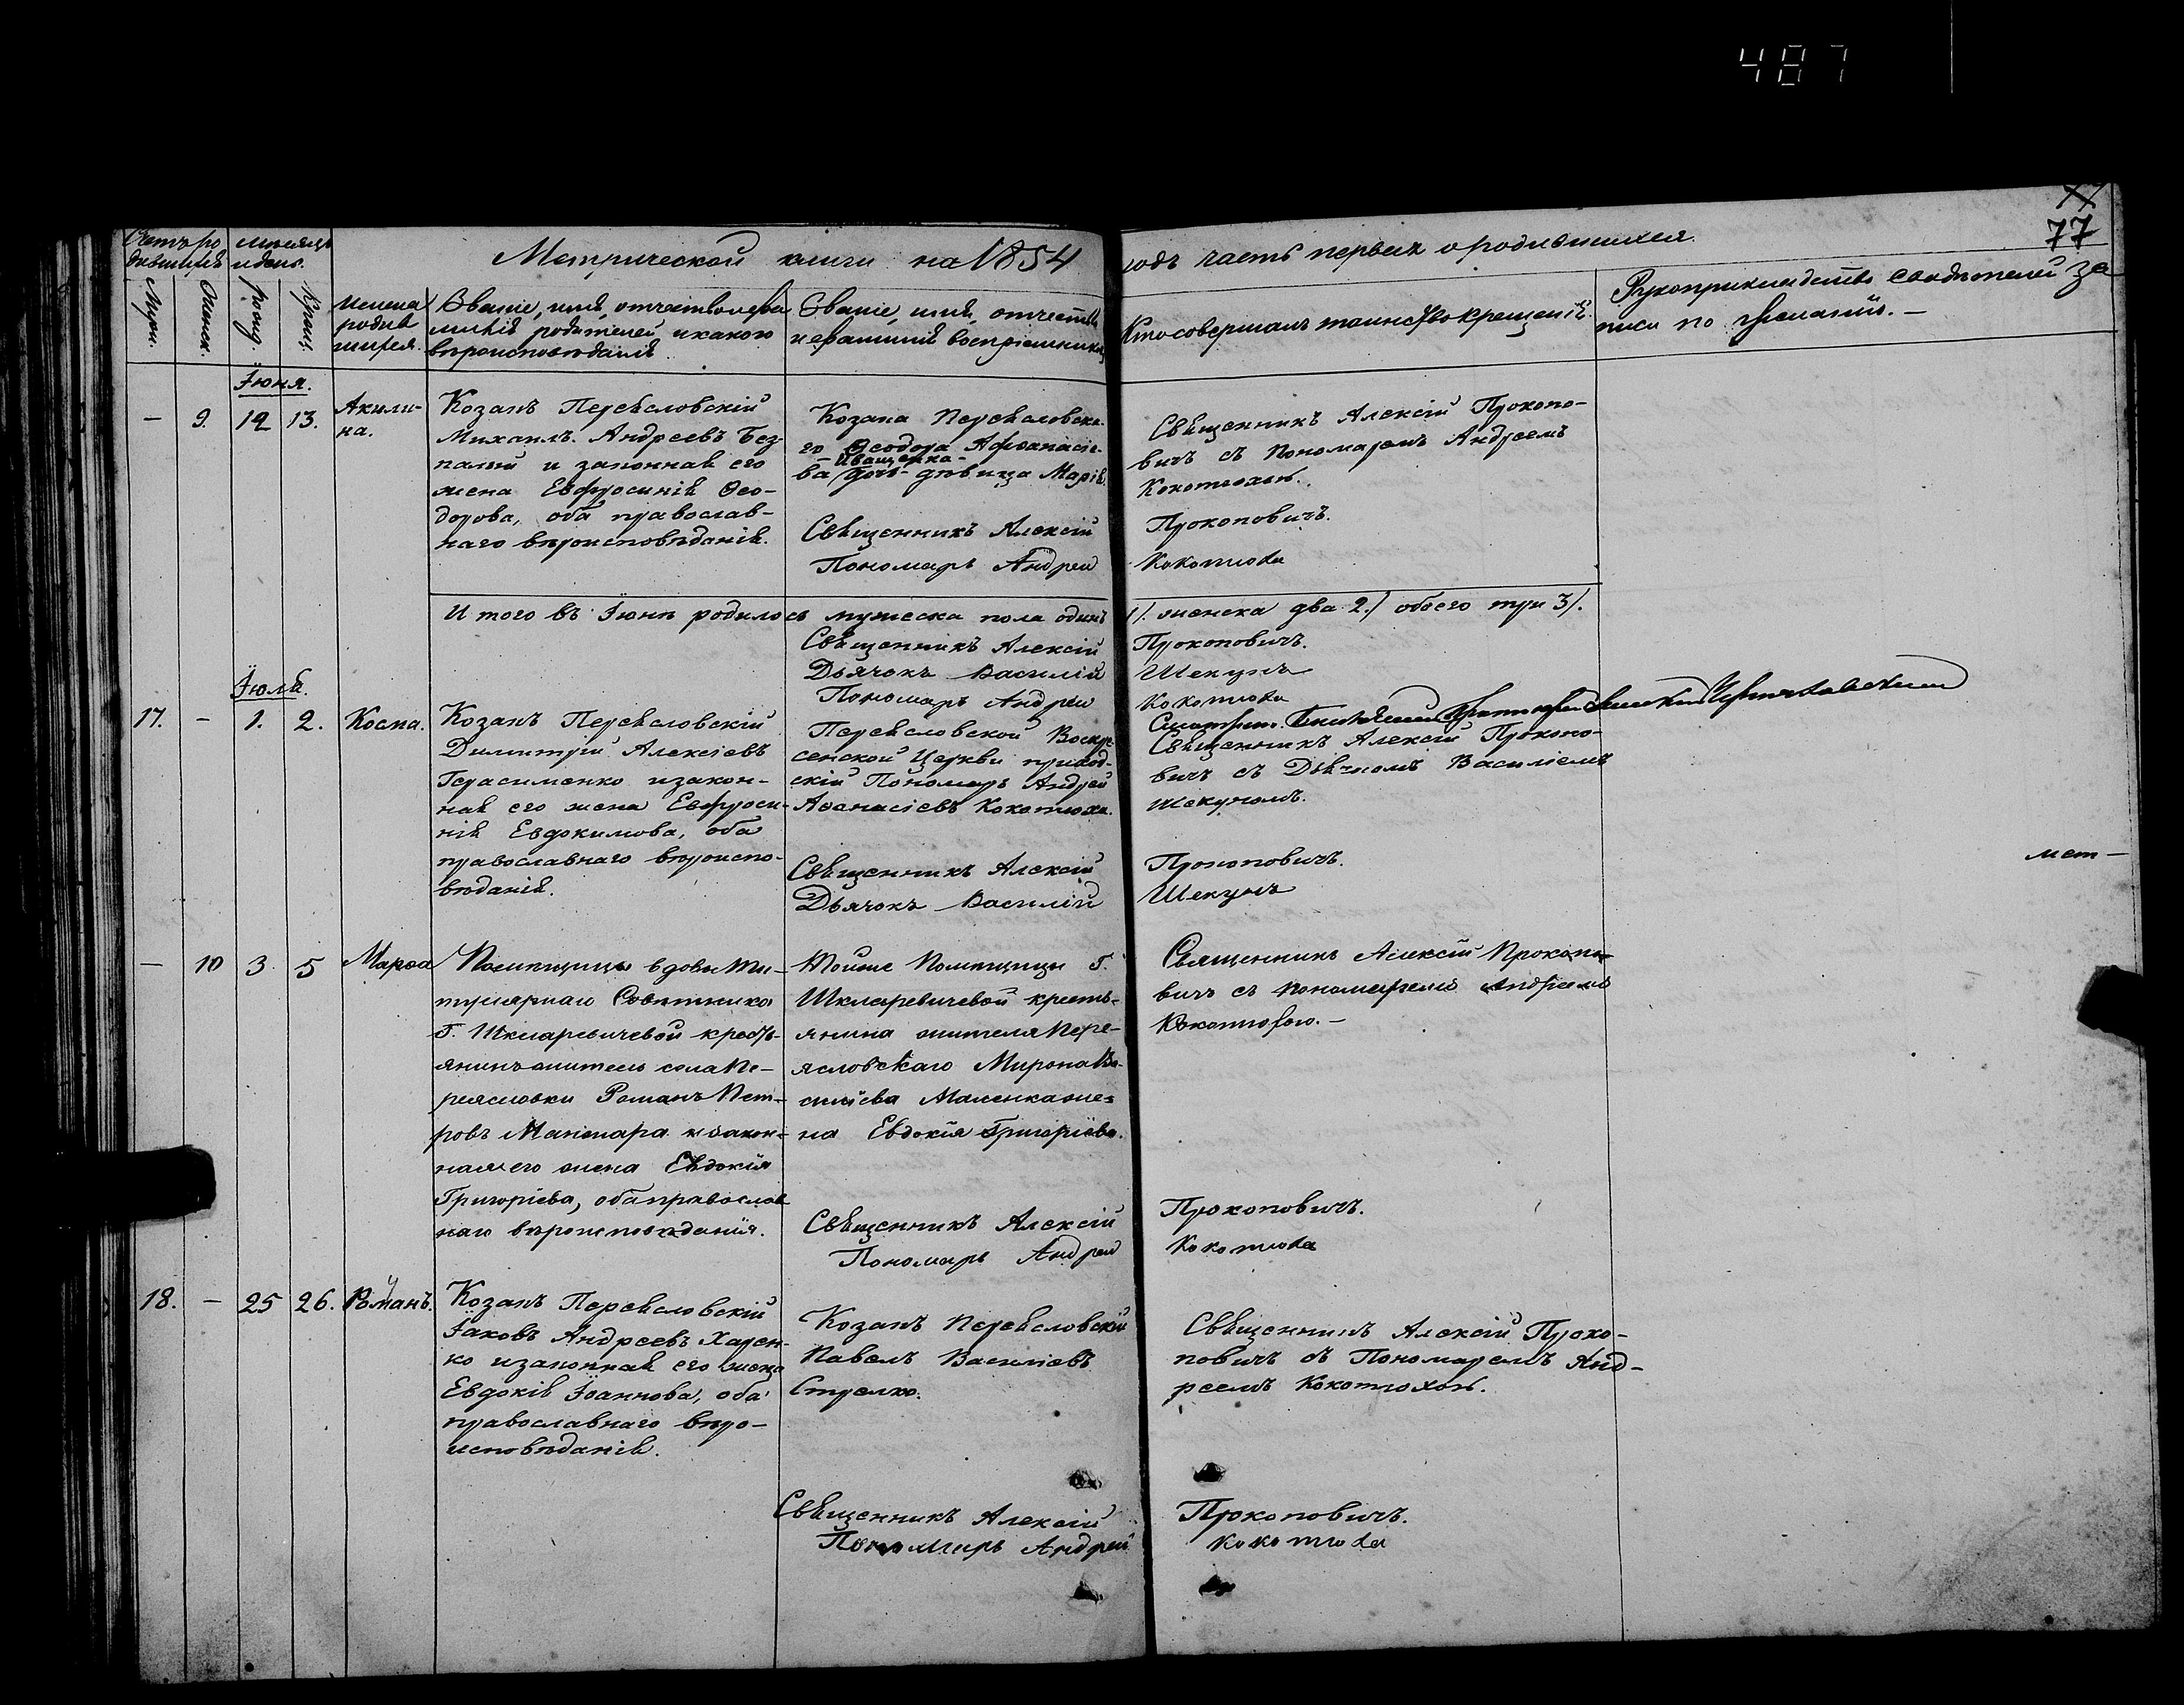 487
77
Метрической книги на 1854
годъ часть первая о родившихся.
Счетъ ро
дившихся
Мѣсяцъ
и день.
Муж.
Женск.
рожд.
Крещ.
Имена
родив
шихся.
Званіе, имя, отчество и фа
милія родителей и какого
вѣроисповѣданія
Званіе, имя, отчество
и фамилія воспріемниковъ
Кто совершалъ таинство крещенія.
Рукоприкладство свидѣтелей за
писи по желанію. —
Іюня.
— 9. 12 13.
Акили-
на.
Козакъ Переясловскій
Михаилъ Андреевъ Без-
палый и законная его
жена Евфросинія Ѳео-
дорова, оба православ-
наго вѣроисповѣданія.
Козака Переясловска-
го Ѳеодора Афанасіе-
— Иващенка —
ва дочь дѣвица Марія.
Священникъ Алексій
Пономарь Андрей
Священникъ Алексій Прокопо-
вичъ съ Пономаремъ Андреемъ
Кокотюхою.
Прокоповичъ.
Кокотюха
И того въ Іюнѣ родилось мужеска пола одинъ
1/. женска два 2./ обоего три 3/.
Священникъ Алексій
Дьячокъ Василій
Пономарь Андрей
Прокоповичъ.
Шекунъ
Кокотюха
Іюля.
17. — 1. 2. Косма.
Козакъ Переясловскій
Димитрій Алексіевъ
Герасименко и закон-
ная его жена Евфроси-
нія Евдокимова, оба
православнаго вѣроиспо-
вѣданія.
Переясловской Воскре-
сенской Церкви приход-
скій Пономарь Андрей
Аѳанасіевъ Кокотюха.
Священникъ Алексій
Дьячокъ Василій
Священникъ Алексій Прокопо-
вичъ съ Дьячкомъ Василіемъ
Шекуномъ.
Прокоповичъ.
Шекунъ
мет —
— 10 3. 5 Марѳа
Помѣщицы вдовы Ти-
тулярнаго Совѣтника
Г. Шкляревичевой кресть-
янинъ житель села Пе-
реясловки Романъ Пет-
ровъ Манжара и закон-
ная его жена Евдокія
Григоріева, оба православ
наго вѣроисповѣданія.
Тойже Помѣщицы Г.
Шкляревичевой кресть-
янина жителя Пере-
ясловскаго Мирона Ва-
силіева Маленка же-
на Евдокія Григоріева.
Священникъ Алексій
Пономарь Андрей
Священникъ Алексій Прокопо-
вичъ съ Пономаремъ Андреемъ
Кокотюхою. —
Прокоповичъ.
Кокотюха
18. — 25 26. Романъ.
Козакъ Переясловскій
Іаковъ Андреевъ Харен-
ко и законная его жена
Евдокія Іоаннова, оба
православнаго вѣро-
исповѣданія.
Козакъ Переясловскій
Павелъ Василіевъ
Стрелко.
Священникъ Алексій
Пономарь Андрей
Священникъ Алексій Проко-
повичъ съ Пономаремъ Анд-
реемъ Кокотюхою.
Прокоповичъ.
Кокотюха